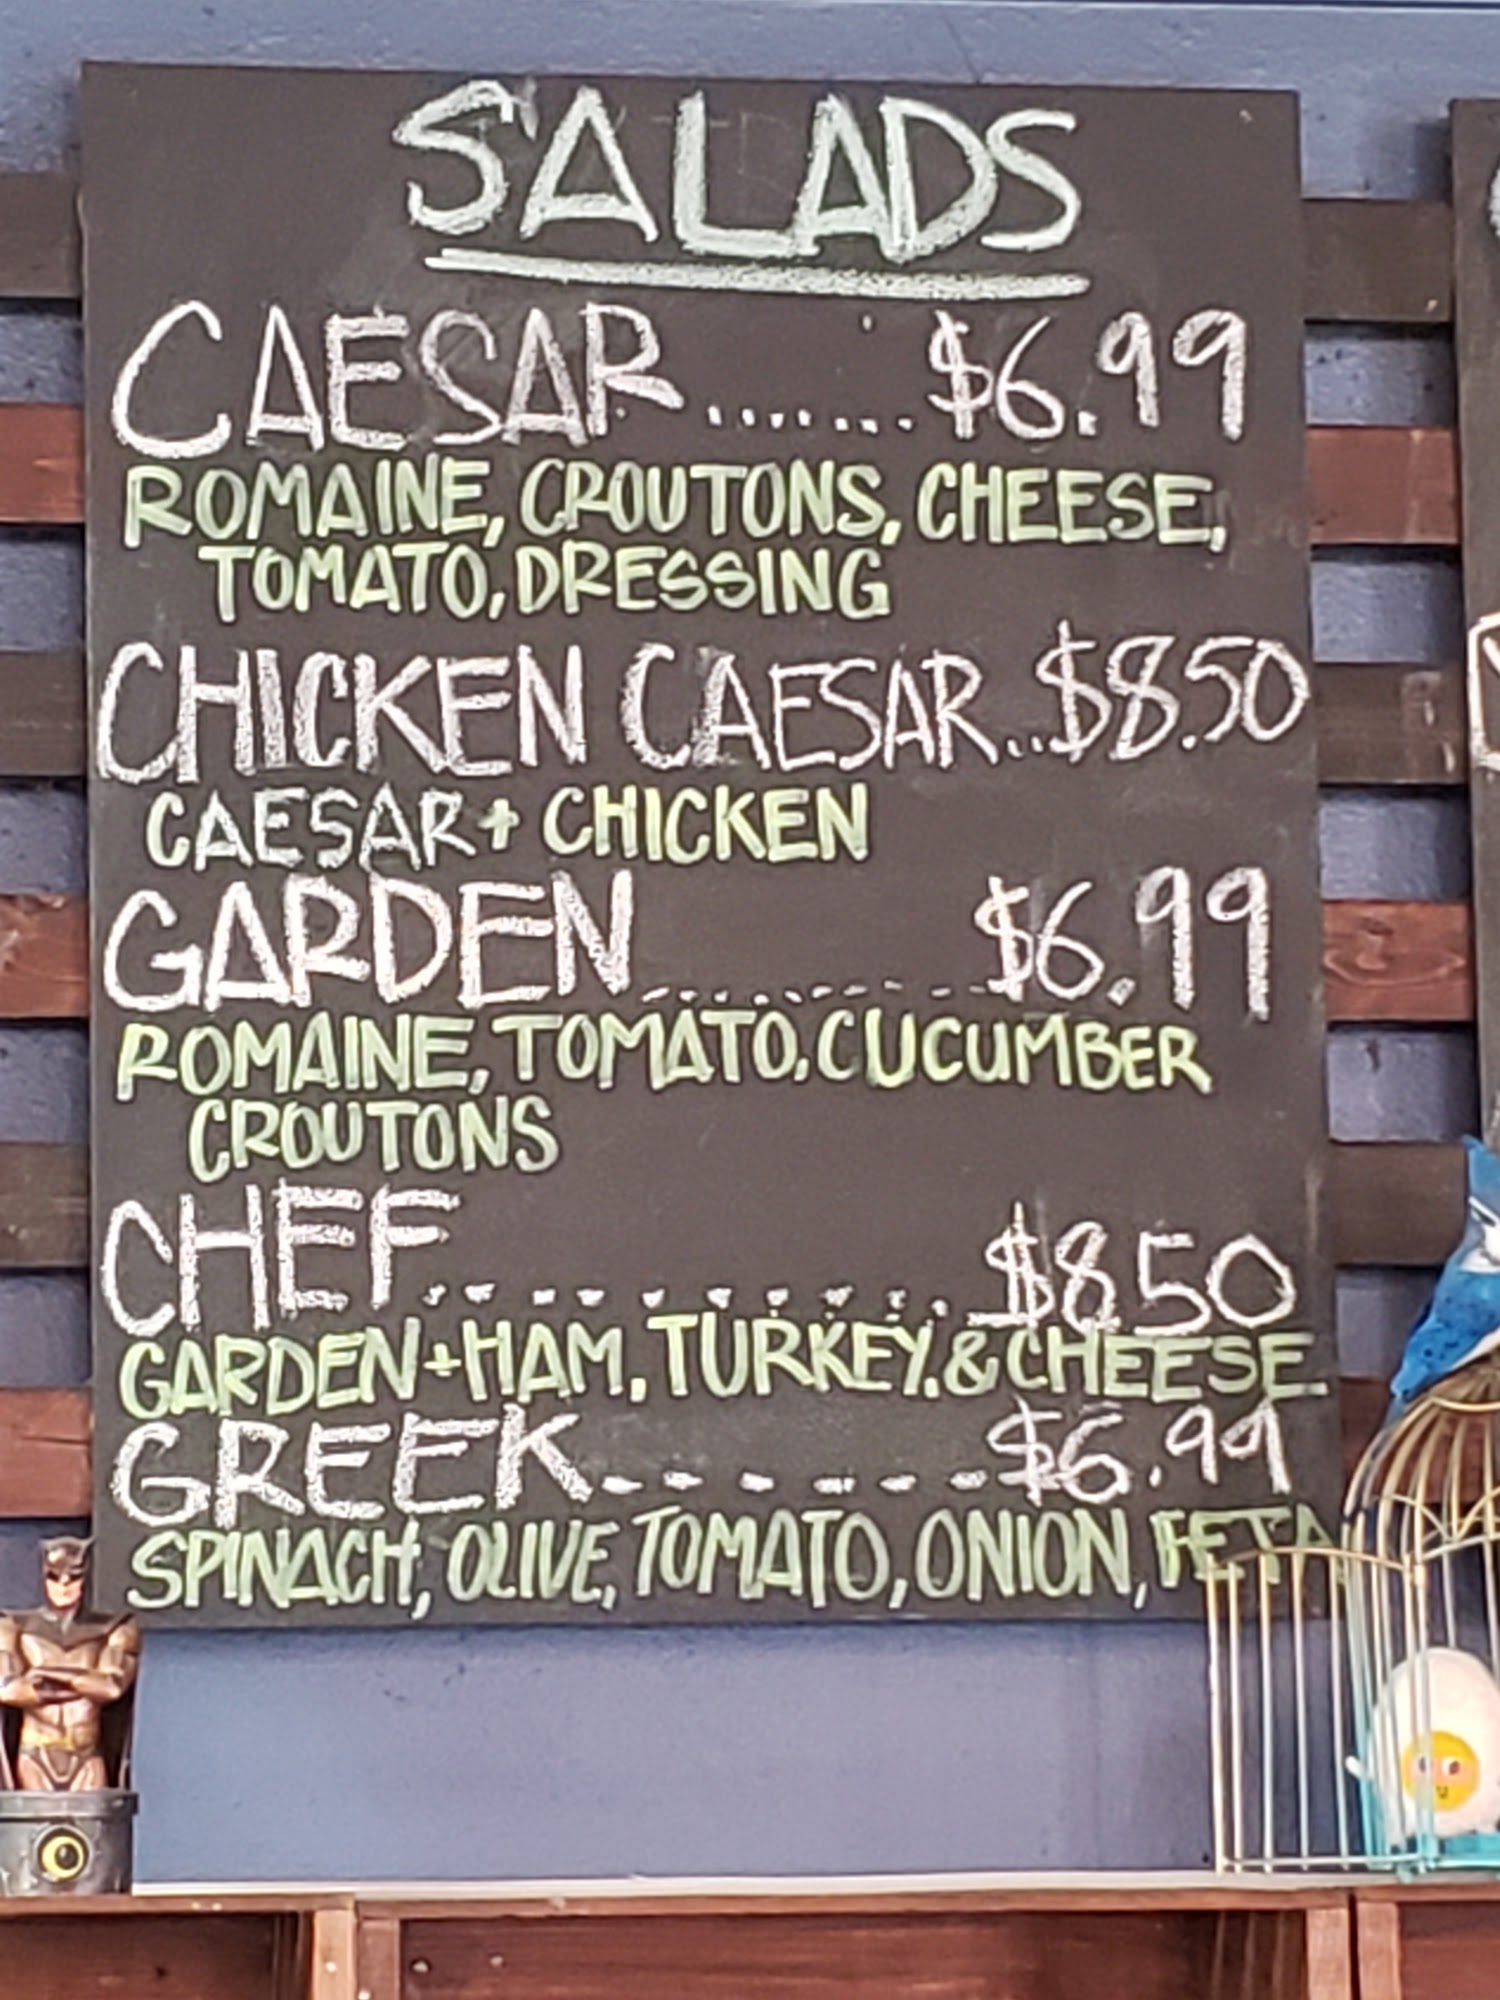 SALADS
CAESAR.......$6.99
ROMAINE, CROUTONS, CHEESE,
TOMATO, DRESSING
CHICKEN CAESAR...$8.50
CAESAR + CHICKEN
GARDEN..........$6.99
ROMAINE, TOMATO, CUCUMBER
CROUTONS
CHEF..........$8.50
GARDEN + HAM, TURKEY, & CHEESE
GREEK.......$6.99
SPINACH, OLIVE, TOMATO, ONION, FETA